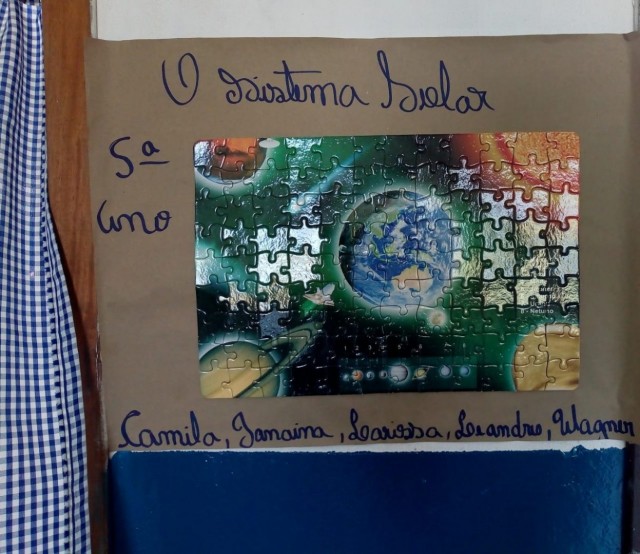 O Sistema Solar
5ª
ano
8 - Neturno
Camila, Janaina, Larissa, Leandro, Wagner